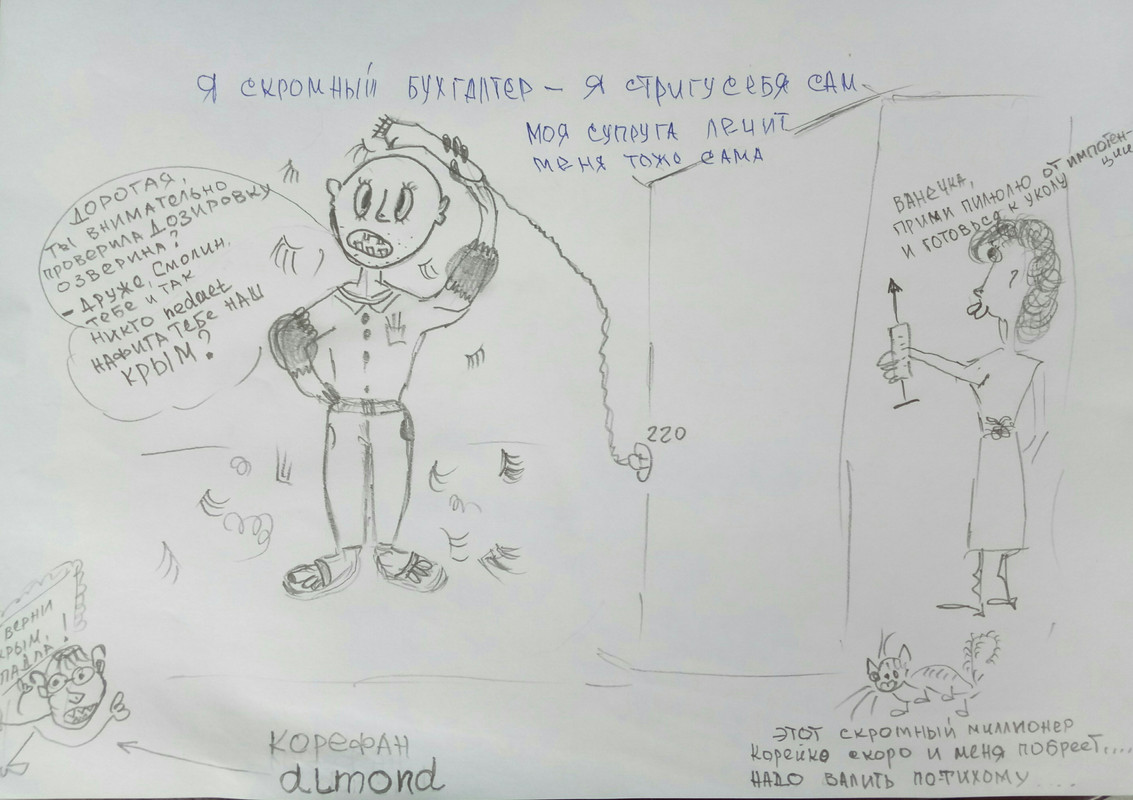 Я СКРОМНЫЙ БУХГАЛТЕР – Я СТРИГУ СЕБЯ САМ
МОЯ СУПРУГА ЛЕЧИТ
МЕНЯ ТОЖО САМА
ДОРОГАЯ,
ТЫ ВНИМАТЕЛЬНО
ПРОВЕРИЛА ДОЗИРОВКУ
ОЗВЕРИНА?
- ДРУЖЕ, СМОЛИН,
ТЕБЕ И ТАК
НИКТО недает
НАФИГА ТЕБЕ НАШ
КРЫМ?
ВАНЕЧКА,
ПРИМИ ПИЛЮЛЮ ОТ ИМПОТЕН-
ЦИИ
И ГОТОВЬСЯ К УКОЛУ
220
ВЕРНИ
КРЫМ,
ПАДЛА!
КОРЕФАН
dimond
ЭТОТ СКРОМНЫЙ МИЛЛИОНЕР
Корейко скоро и меня ПОБРЕЕТ....
НАДО ВАЛИТЬ ПОТИХОМУ....